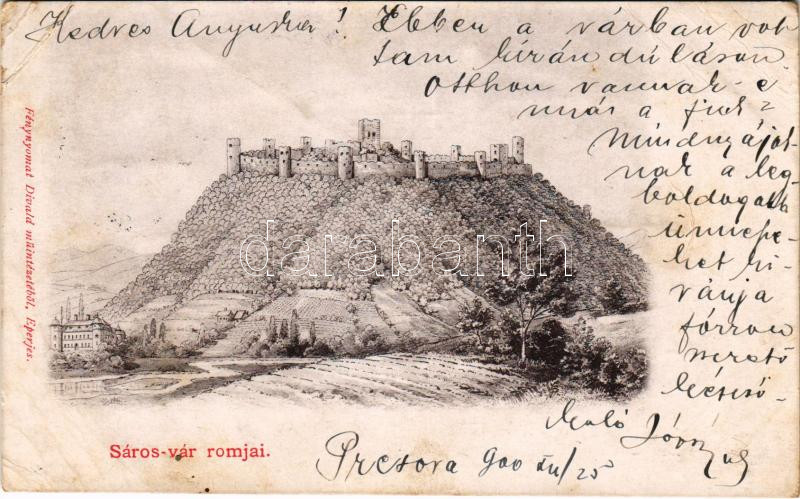 Kedves Anyuska! Ebben a várban vol
tam kiránduláson.
Otthon vannak-e
már a fiuk?
Mindnyájok
nak a leg
boldogabb
ünnepe
ket ki
vánja
forron
szerető
Fénynyomat Divald műintézetéből, Eperjes.
darabanth
Sáros-vár romjai.
900 XII/25